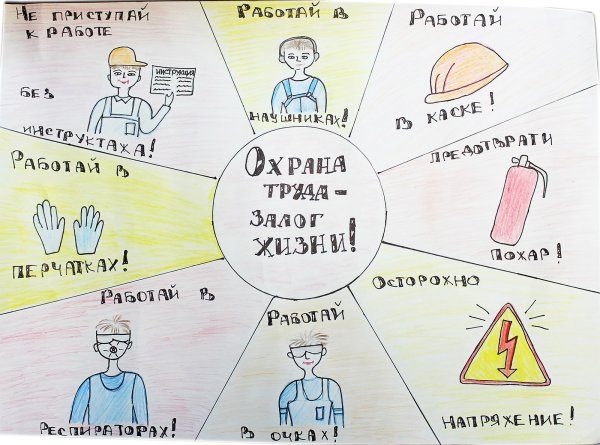 Не приступай
к работе
без
инструктажа!
инструкция
Работай в
наушниках!
Работай
в каске!
Предотврати
пожар!
Осторожно
напряжение!
Работай
в очках!
Работай в
респираторах!
Работай в
перчатках!
Охрана
труда –
залог
жизни!